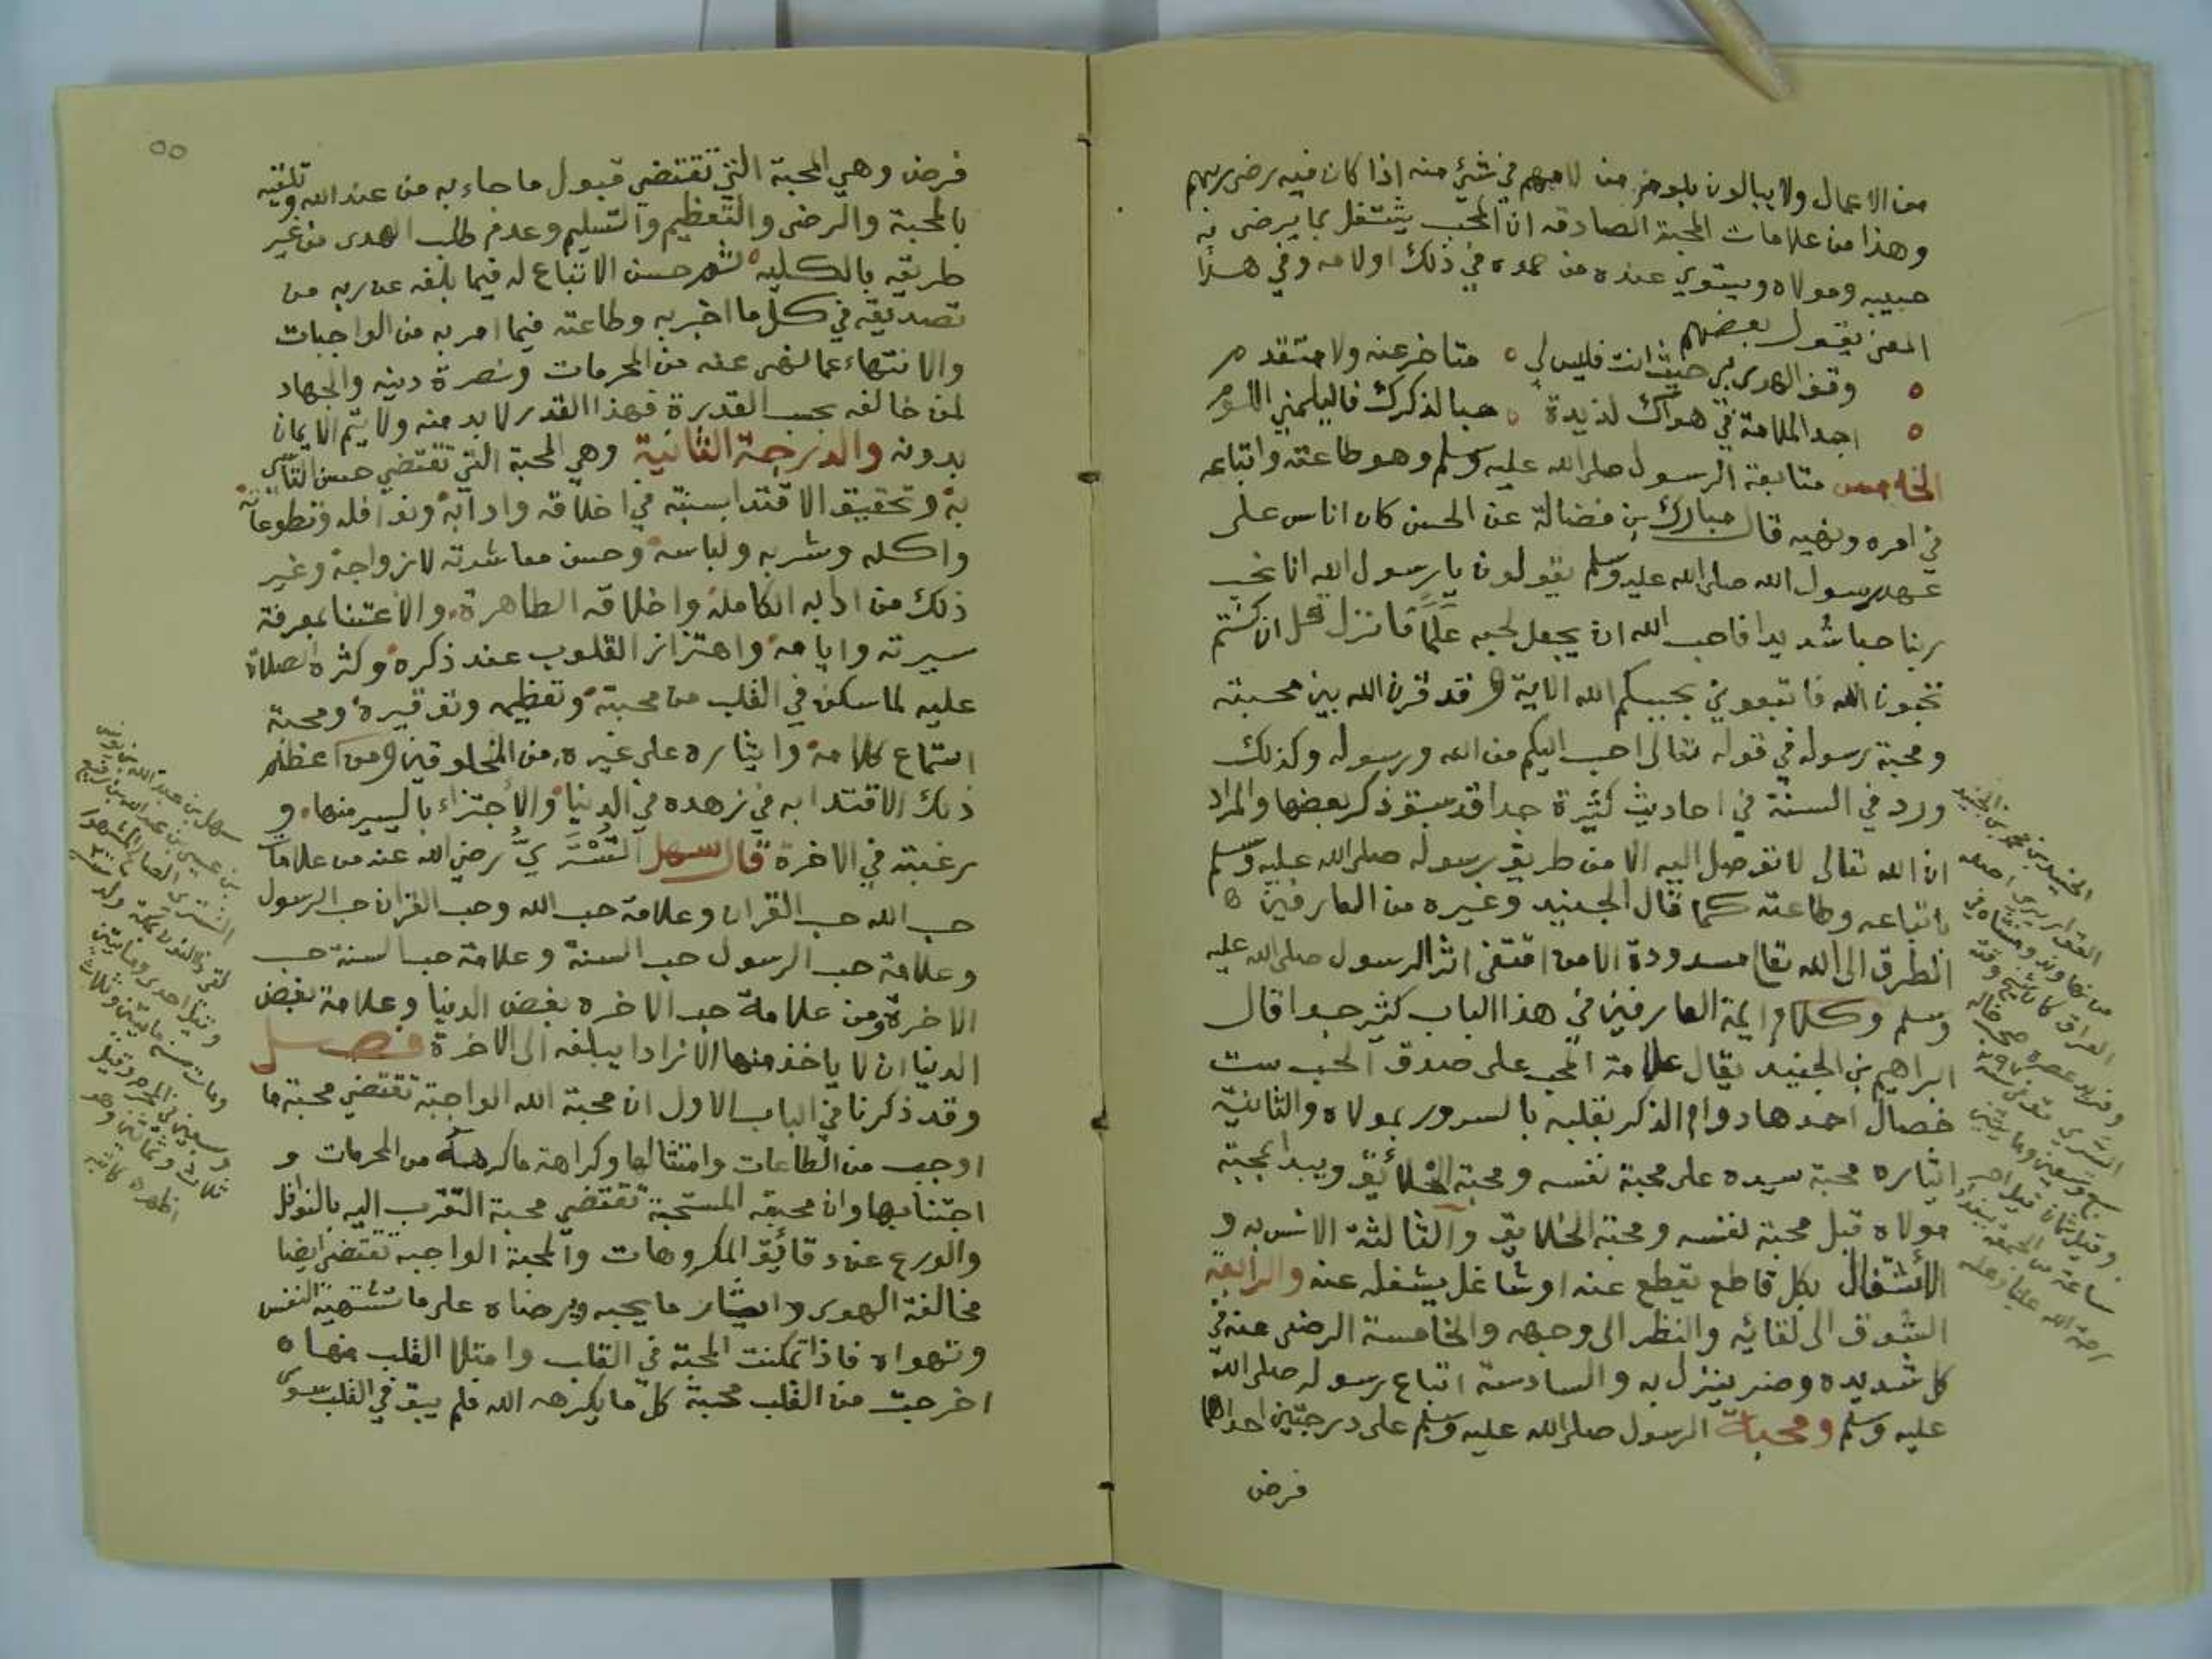 من الاعمال ولا يبالون بلوم من لامهم في شئ منه اذا كان فيه رضى ربهم
وهذا من علامات المحبة الصادقه ان المحب يشتغل بما يرضى به
حبيبه ومولاه ويستوي عنده من حمده في ذلك او لامه وفي هذا
المعنى يقول بعضهم
وقف الهوى بي حيث انت فليس لي ه متاخر عنه ولا متقدم
اجد الملامة في هواك لذيذة ه حبا لذكرك فاليلمني اللوم
الخامس متابعة الرسول صلى الله عليه وسلم وهو طاعته واتباعه
في امره ونهيه قال مبارك بن فضالة عن الحسن كان اناس على
عهد رسول الله صلى الله عليه وسلم يقولون يا رسول الله انا نحب
ربنا حبا شديدا فاحب الله ان يجعل لحبه علما فانزل قل ان كنتم
تحبون الله فاتبعوني يحببكم الله الاية وقد قرن الله بين محبته
ومحبة رسوله في قوله تعالى احب اليكم من الله ورسوله وكذلك
ورد في السنة في احاديث كثيرة جدا قد سبق ذكر بعضها والمراد
ان الله تعالى لا توصل اليه الا من طريق رسوله صلى الله عليه وسلم
باتباعه وطاعته كما قال الجنيد وغيره من العارفين ه
الطرق الى الله تعا مسدودة الا من اقتفى اثر الرسول صلى الله عليه
وسلم وكلام ايمة العارفين في هذا الباب كثير جدا قال
ابراهيم بن الجنيد يقال علامة المحب على صدق الحب ست
خصال احدها دوام الذكر بقلبه بالسرور بمولاه والثانية
ايثاره محبة سيده على محبة نفسه ومحبة الخلائق ويبدا بمحبة
مولاه قبل محبة نفسه ومحبة الخلايق والثالثة الانس به و
الأستثقال بكل قاطع يقطع عنه او شاغل يشغله عنه والرابعة
الشوق الى لقائه والنظر الى وجهه والخامسة الرضى عنه في
كل شديده وضر ينزل به والسادسة اتباع رسوله صلى الله
عليه وسلم ومحبة الرسول صلى الله عليه وسلم على درجتين احداهما
فرض
الجنيد بن محمد بن الجنيد
القواريري اصله
من نهاوند ومنشاه في
العراق كان شيخ وقته
وفريد عصره صحب خاله
السري توفي سنة
سبع وتسعين ومايتين
وقيل ثمان قيل اخر
ساعة من الجمعة ببغداد
رحمة الله علينا وعليه
٥٥
فرض وهي المحبة التي تقتضي قبول ما جاء به من عند الله وتلقيه
بالمحبة والرضى والتعظيم والتسليم وعدم طلب الهدى من غير
طريقه بالكليه ثم حسن الاتباع له فيما بلغه عن ربه من
تصديقه في كل ما اخبر به وطاعته فيما امر به من الواجبات
والانتهاء عما نهى عنه من المحرمات ونصرة دينه والجهاد
لمن خالفه بحسب القدرة فهذا القدر لا بد منه ولا يتم الايمان
بدونه والدرجة الثانية وهي المحبة التي تقتضي حسن التأسي
به وتحقيق الاقتدا بسنته في اخلاقه وادابه ونوافله وتطوعاته
واكله وشربه ولباسه وحسن معاشرته لازواجه وغير
ذلك من ادابه الكاملة واخلاقه الطاهرة والاعتنا بمعرفة
سيرته وايامه واهتزاز القلوب عند ذكره وكثرة الصلاة
عليه لما سكن في القلب من محبته وتعظيمه وتوقيره ومحبة
استماع كلامه وايثاره على غيره من المخلوقين ومن اعظم
ذلك الاقتدا به في زهده في الدنيا والاجتزاء باليسير منها و
رغبته في الاخرة قال سهل التستري رضي الله عنه من علامات
حب الله حب القران وعلامة حب الله وحب القران حب الرسول
وعلامة حب الرسول حب السنة وعلامة حب السنة حب
الاخرة ومن علامة حب الاخره بغض الدنيا وعلامة بغض
الدنيا ان لا ياخذ منها الا زادا يبلغه الى الاخرة فصل
وقد ذكرنا في الباب الاول ان محبة الله الواجبة تقتضي محبة ما
اوجب من الطاعات وامتثالها وكراهة ما كرهه من المحرمات و
اجتنابها وان محبته المستحبة تقتضي محبة التقرب اليه بالنوافل
والورع عن دقائق المكروهات والمحبة الواجبة تقتضي ايضا
مخالفة الهوى وايثار ما يحبه ويرضاه على ما تشتهيه النفس
وتهواه فاذا تمكنت المحبة في القلب وامتلا القلب منها ه
اخرجت من القلب محبة كل ما يكرهه الله فلم يبق في القلب سوى
سهل بن عبد الله بن يونس
بن عيسى بن عبد الله بن رفيع
التستري الصالح المشهور
لقي ذا النون بمكة ولد سنة
وقيل احدى ومايتين
ومات سنة مايتين وثلاث
وسبعين في المحرم وقيل
ثلاث وثمانين وهو
اظهره كاتبه